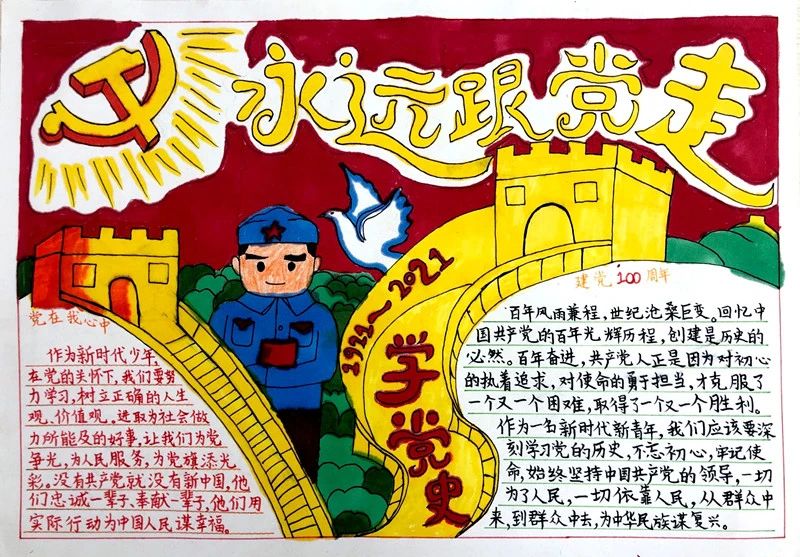 永远跟党走
1921~2021
学党史
党在我心中
作为新时代少年,
在党的关怀下,我们要努
力学习,树立正确的人生
观、价值观。进取为社会做
力所能及的好事,让我们为党
争光,为人民服务,为党旗添光
彩。没有共产党就没有新中国,他
们忠诚一辈子、奉献一辈子,他们用
实际行动为中国人民谋幸福。
建党100周年
百年风雨兼程,世纪沧桑巨变。回忆中
国共产党的百年光辉历程,创建是历史的
必然。百年奋进,共产党人正是因为对初心
的执着追求,对使命的勇于担当,才克服了
一个又一个困难,取得了一个又一个胜利。
作为一名新时代新青年,我们应该要深
刻学习党的历史,不忘初心,牢记使
命,始终坚持中国共产党的领导,一切
为了人民,一切依靠人民,从群众中
来,到群众中去,为中华民族谋复兴。